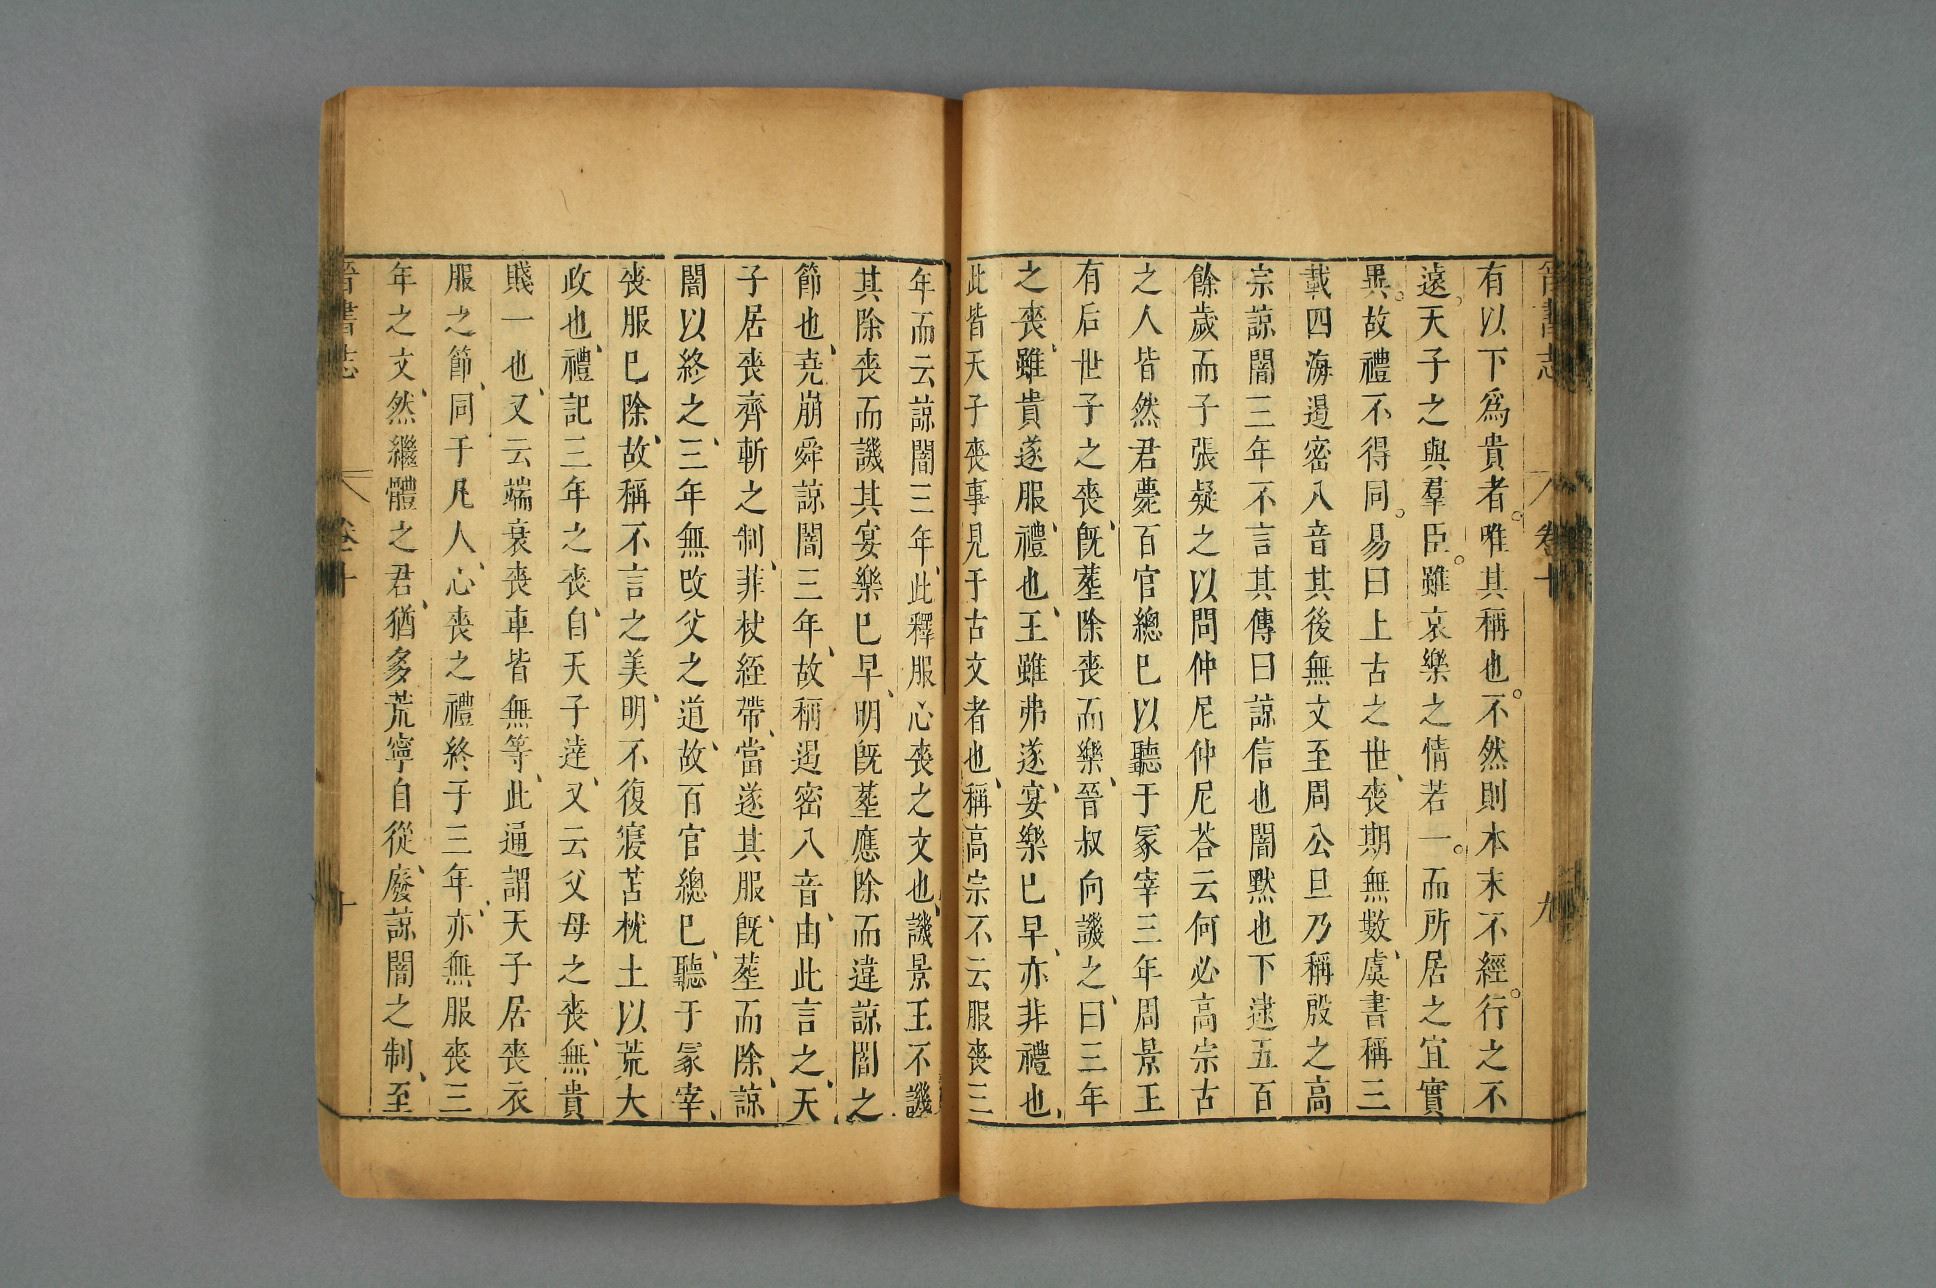 晉書志 卷十 九
有以下爲貴者。唯其稱也。不然則本末不經。行之不
遠。天子之與羣臣。雖哀樂之情若一。而所居之宜實
異。故禮不得同。易曰上古之世、喪期無數、虞書稱三
載四海遏密八音其後無文至周公旦乃稱殷之高
宗諒闇三年不言其傳曰諒信也闇默也下逮五百
餘歲而子張疑之以問仲尼仲尼荅云何必高宗古
之人皆然君薨百官總巳以聽于冢宰三年周景王
有后世子之喪、旣、塟除喪而樂、晉叔向譏之、曰三年
之喪、雖貴遂服、禮也、王雖弗遂、宴樂巳早、亦非禮也、
此皆天子喪事見于古文者也、稱高宗不云服喪三
年而云諒闇三年、此釋服心喪之文也、譏景王不譏
其除喪而譏其宴樂巳早、明旣塟應除而違諒闇之
節也、堯崩舜諒闇三年、故稱遏密八音、由此言之、天
子居喪齊斬之制、菲杖絰帶、當遂其服、旣、塟而除、諒
闇以終之、三年無改父之道、故百官總巳、聽于冢宰、
喪服巳除、故稱不言之美、明不復寢苫枕土以荒大
政也、禮記三年之喪、自天子達、又云父母之喪、無貴
賤一也、又云端衰喪車皆無等、此通謂天子居喪衣
服之節、同于凡人、心喪之禮終于三年、亦無服喪三
年之文、然繼體之君、猶多荒寧自從、廢諒闇之制、至
晉書志 卷十 十